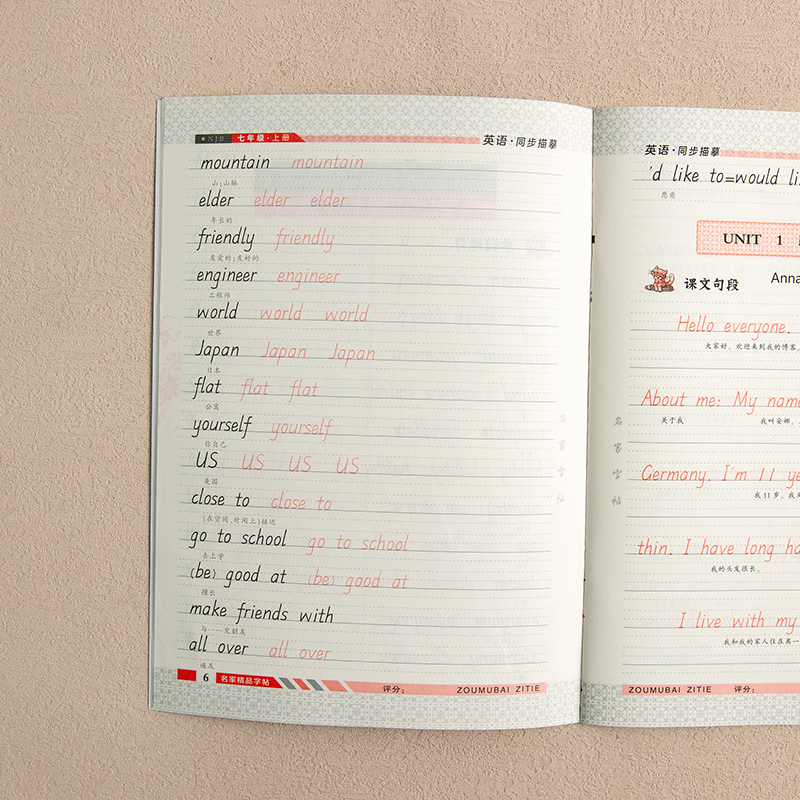 NJB 七年级·上册
英语·同步描摹
mountain mountain
山;山脉
elder elder elder
年长的
friendly friendly
友爱的;友好的
engineer engineer
工程师
world world world
世界
Japan Japan Japan
日本
flat flat flat
公寓
yourself yourself
你自己
US US US US
美国
close to close to
(在空间、时间上)接近
go to school go to school
去上学
(be) good at (be) good at
擅长
make friends with
与……交朋友
all over all over
遍及
6 名家精品字帖 评分: ZOUMUBAI ZITIE
名家字帖
英语·同步描摹
'd like to=would li
愿意
UNIT 1
课文句段 Anna
Hello everyone.
大家好。欢迎来到我的博客。
About me: My name
关于我 我叫安娜。
Germany. I'm 11 ye
我11岁。我
thin. I have long ha
我的头发很长。
I live with my
我和我的家人住在离一
名家字帖
ZOUMUBAI ZITIE 评分: